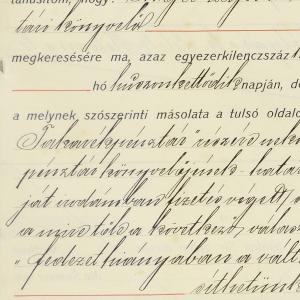 tanusítom, hogy
tári könyvelő
megkeresésére ma, azaz egyezerkilenczszáz
hó huszonkettedik napján, de
a melynek szószerinti másolata a tulsó oldalo
Takarékpénztár" részére
pénztár könyvelőjének - hatá
ját irodámban fizetés végett
a nyert tőle a következő válasz
"fedezet hiányában a vált